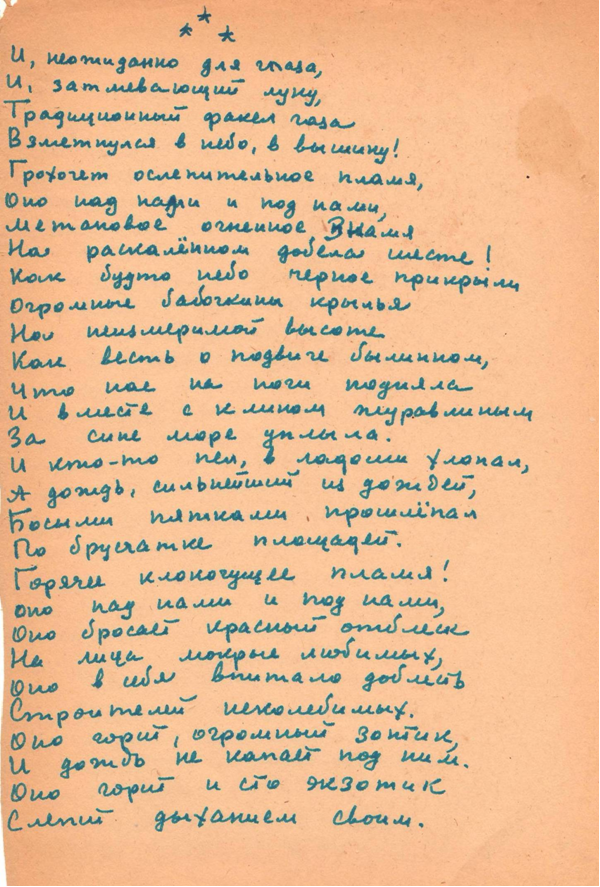 ***
И, неожиданно для глаза,
И, затмевающий луну,
Традиционный факел газа
Взметнулся в небо, в вышину!
Грохочет ослепительное пламя,
Оно над нами и под нами,
Метановое огненное Знамя
На раскалённом добела шесте!
Как будто небо черное прикрыли
Огромные бабочкины крылья
На неизмеримой высоте
Как весть о подвиге былинном,
Что нас на ноги подняла
И вместе с клином журавлиным
За сине море уплыла.
И кто-то пел, в ладоши хлопал,
А дождь, сильнейший из дождей,
Босыми пятками прошлёпал
По брусчатке площадей.
Горячее клокочущее пламя!
Оно над нами и под нами,
Оно бросает красный отблеск
На лица мокрые любимых,
Оно в себя впитало доблесть
Строителей неколебимых.
Оно горит, огромный зонтик,
И дождь не капает под ним.
Оно горит и сто экзотик
Слепит дыханием своим.